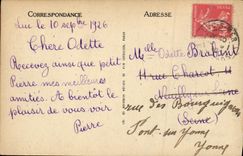 CORRESPONDANCE
ADRESSE
Luc le 10 septbre 1926
Chère Odette
Recevez ainsi que petit
Pierre mes meilleures
amitiés. A bientôt le
plaisir de vous voir
Pierre
Melle Odette Brabant
11 rue Charcot 11
Neuilly sur Seine
(Seine)
rue des Bourguignons
Pont-sur-Yonne
Yonne